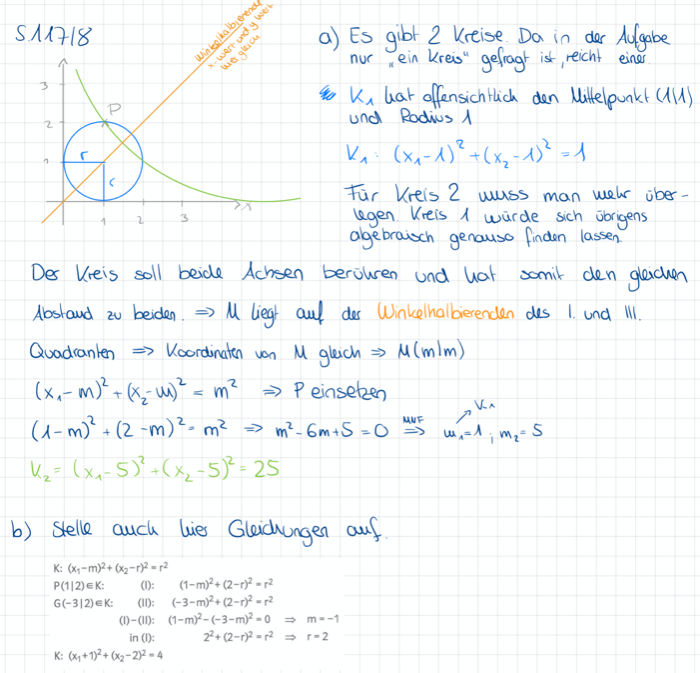 S.117/8
Winkelhalbierende
x-wert und y wert
sind gleich
3
2
1
P
r
r
1
2
3
x
a) Es gibt 2 Kreise. Da in der Aufgabe
nur "ein Kreis" gefragt ist, reicht einer.
K₁ hat offensichtlich den Mittelpunkt (1|1)
und Radius 1
K₁: (x₁-1)² + (x₂-1)² = 1
Für Kreis 2 muss man mehr über-
legen Kreis 1 würde sich übrigens
algebraisch genauso finden lassen.
Der Kreis soll beide Achsen berühren und hat somit den gleichen
Abstand zu beiden. ⇒ M liegt auf der Winkelhalbierenden des I. und III.
Quadranten ⇒ Koordinaten von M gleich ⇒ M(m|m)
(x₁-m)² + (x₂-m)² = m² ⇒ P einsetzen
(1-m)² + (2-m)² = m² ⇒ m²-6m+5=0 MNF ⇒ m₁=1 ; m₂=5
K₁
K₂ = (x₁-5)² + (x₂-5)² = 25
b) Stelle auch hier Gleichungen auf.
K: (x₁-m)²+(x₂-r)²=r²
P(1|2)∈K: (I): (1-m)²+(2-r)²=r²
G(-3|2)∈K: (II): (-3-m)²+(2-r)²=r²
(I)-(II): (1-m)²-(-3-m)²=0 ⇒ m=-1
in (I): 2²+(2-r)²=r² ⇒ r=2
K: (x₁+1)²+(x₂-2)²=4